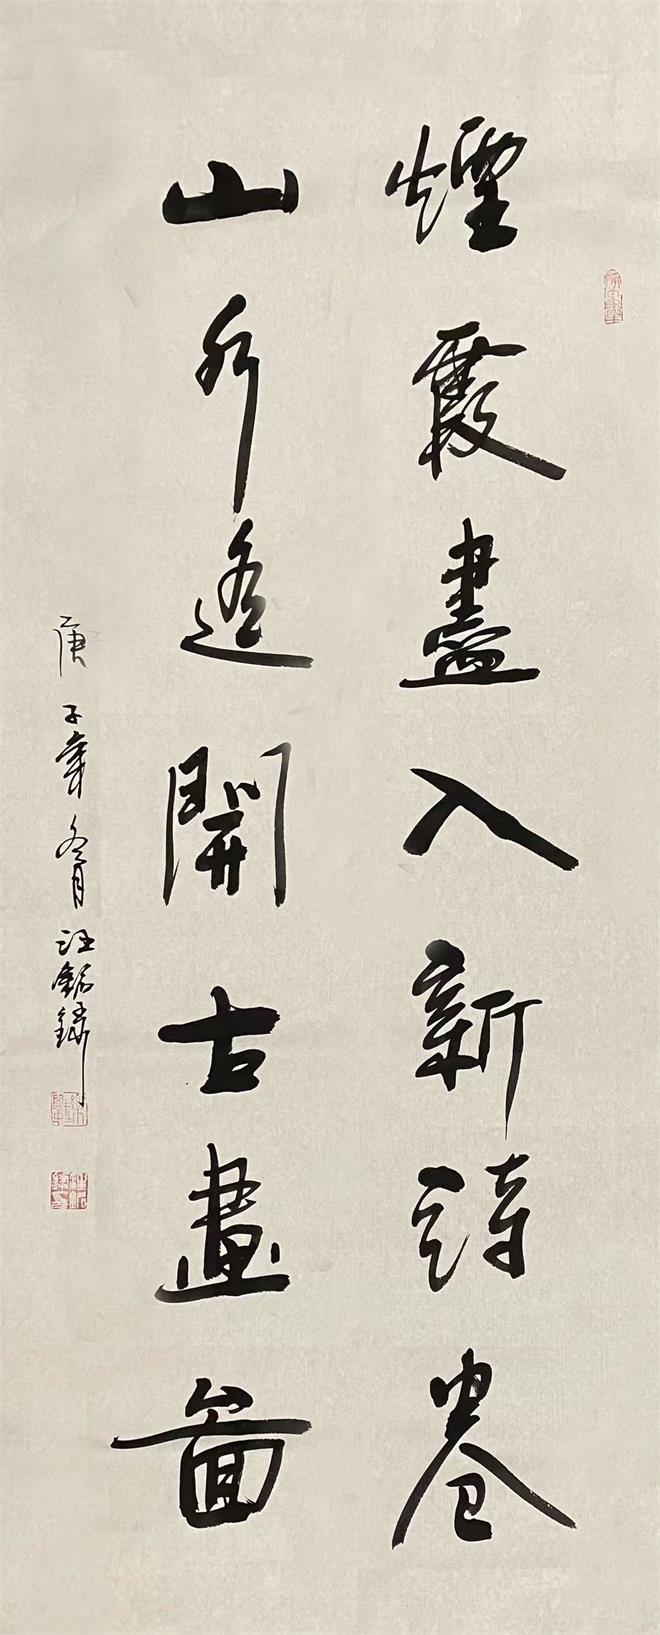 煙霞盡入新詩卷
山水遙開古畫圖
庚子年冬月汪